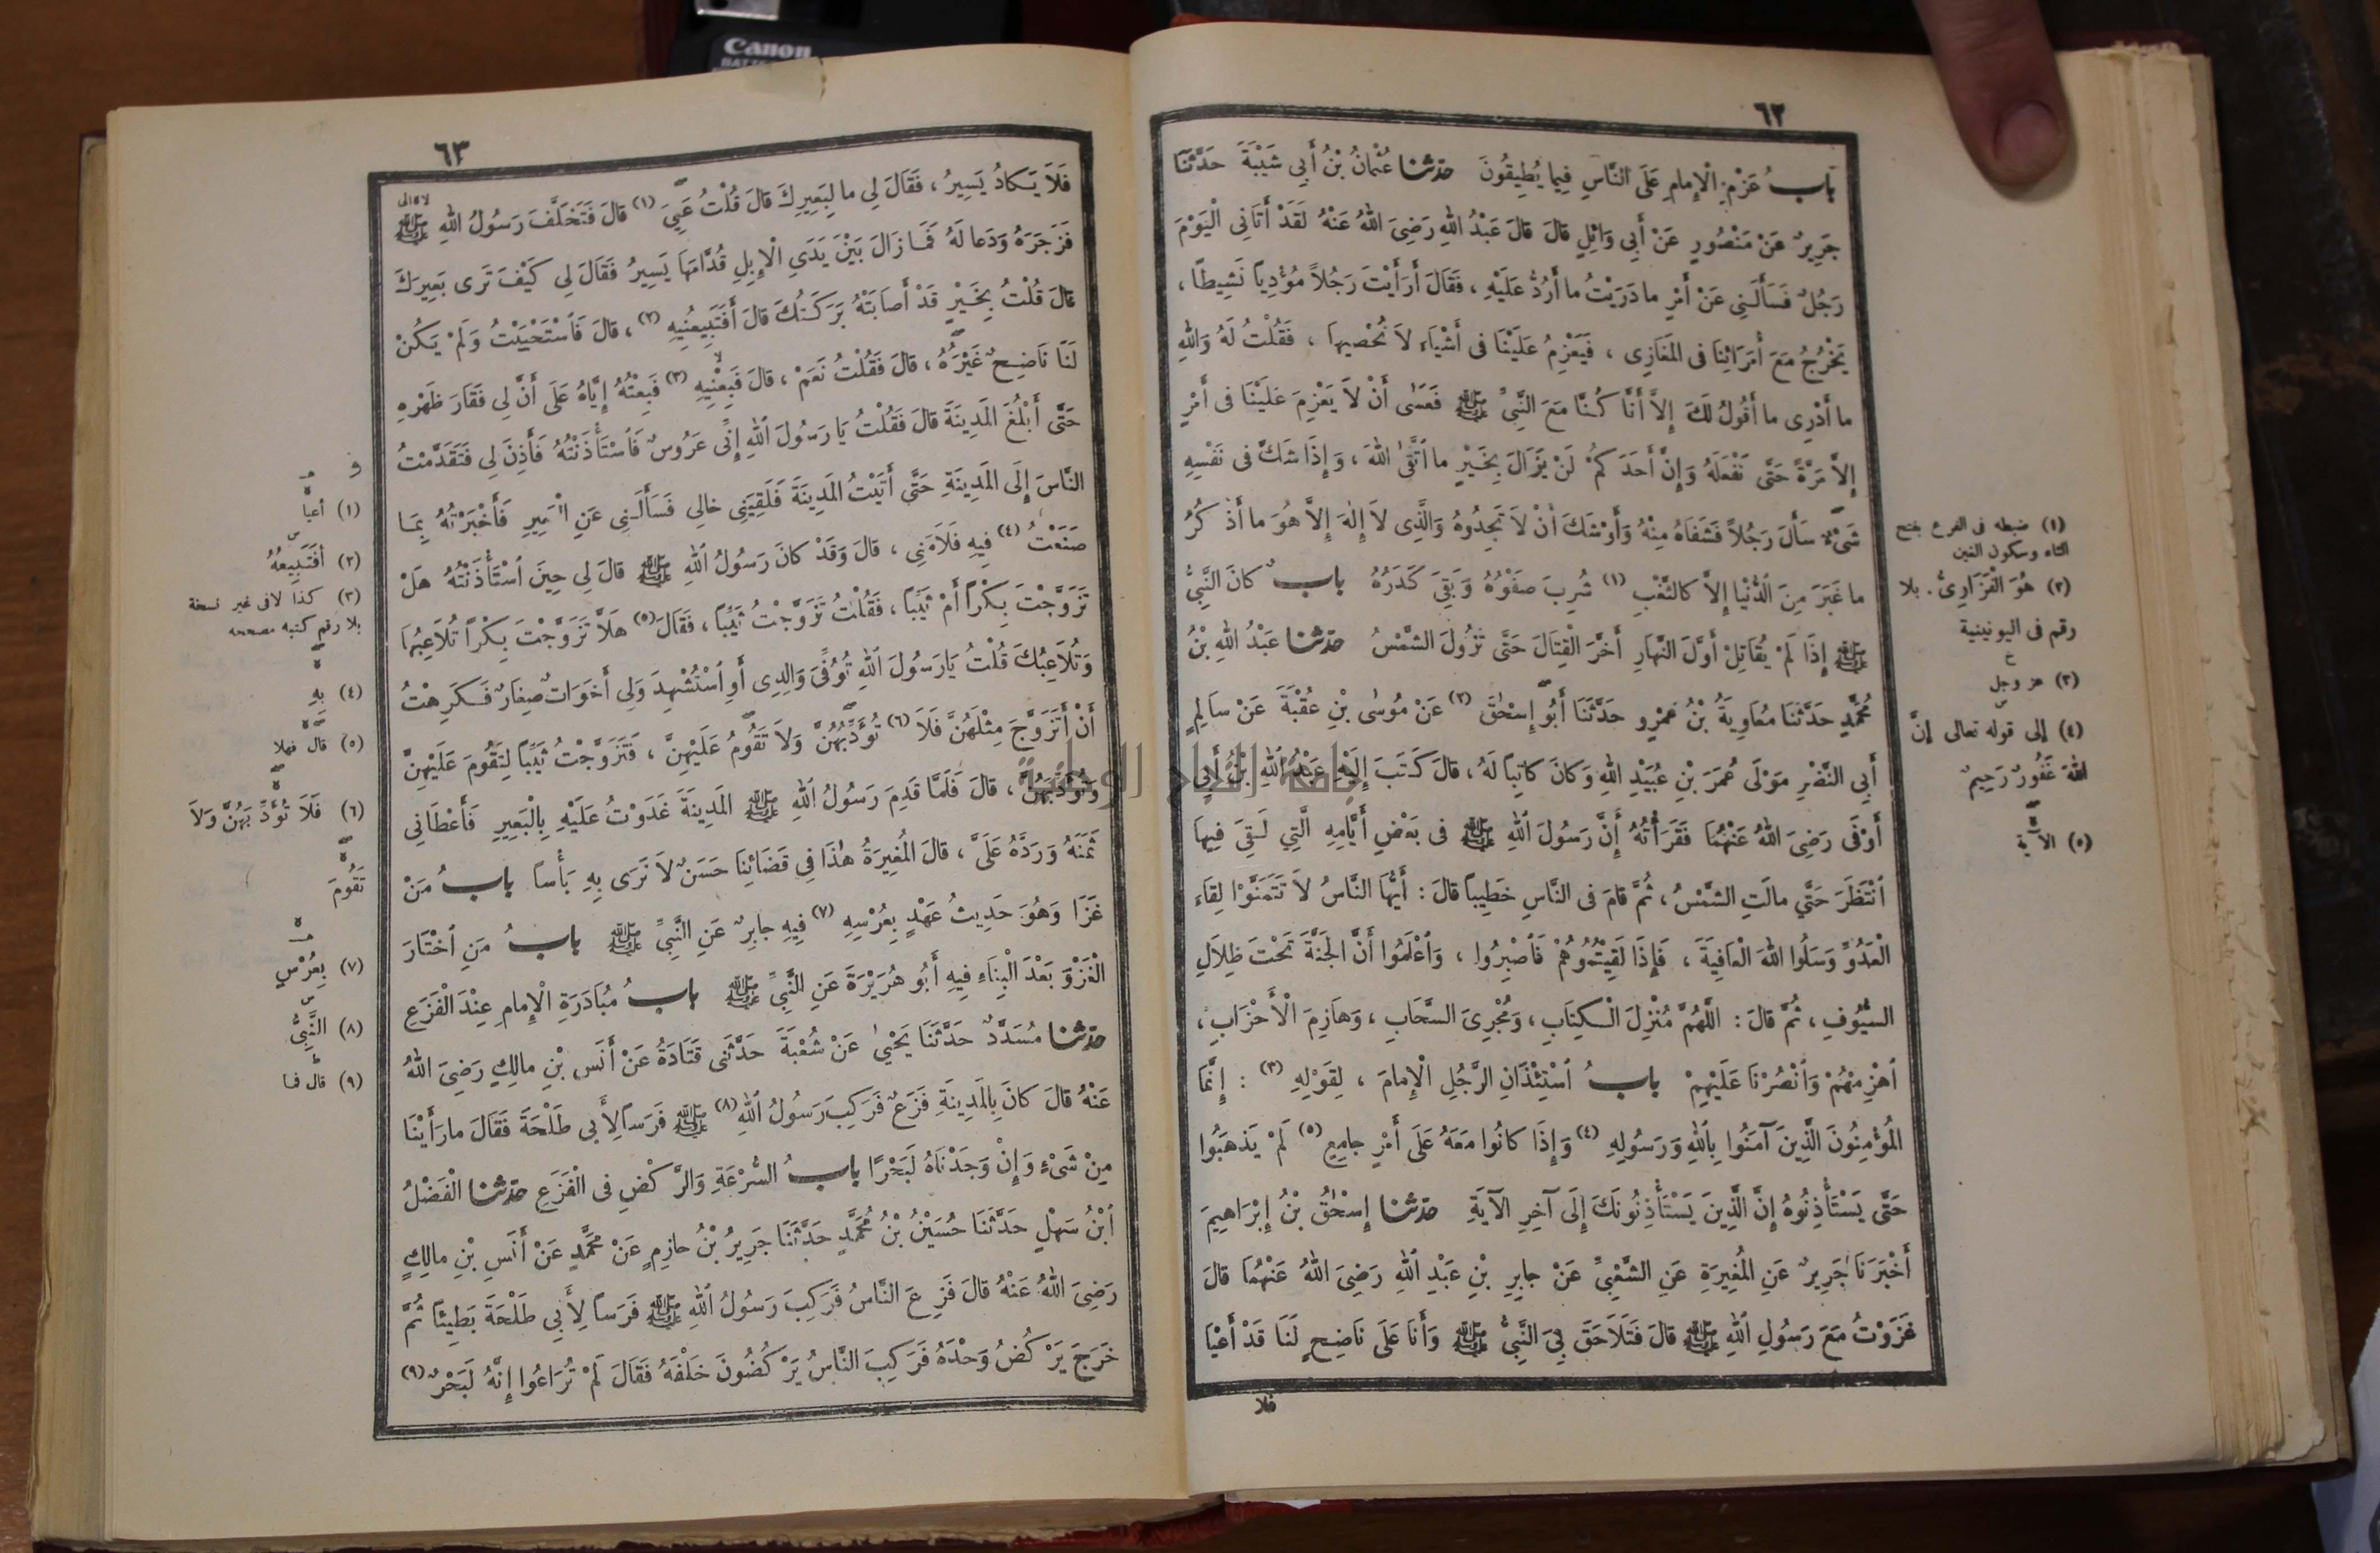 Canon
٦٢
بابُ عَزْمِ الْإِمامِ عَلَى النَّاسِ فِيما يُطِيقُونَ حدثنا عُثْمانُ بْنُ أَبِي شَيْبَةَ حَدَّثَنَا
جَرِيرٌ عَنْ مَنْصُورٍ عَنْ أَبِي وَائِلٍ قالَ قالَ عَبْدُ اللهِ رَضِيَ اللهُ عَنْهُ لَقَدْ أَتَانِي الْيَوْمَ
رَجُلٌ فَسَأَلَنِي عَنْ أَمْرٍ ما دَرَيْتُ ما أَرُدُّ عَلَيْهِ ، فَقَالَ أَرَأَيْتَ رَجُلاً مُؤْدِياً نَشِيطًا ،
يَخْرُجُ مَعَ أُمَرَائِنَا فى المَغَازِى ، فَيَعْزِمُ عَلَيْنَا فى أَشْيَاءَ لاَ نُحْصِيها ، فَقُلْتُ لَهُ وَاللهِ
ما أَدْرِى ما أَقُولُ لَكَ إِلاَّ أَنَّا كُنَّا مَعَ النَّبِيِّ ﷺ فَعَسَى أَنْ لاَ يَعْزِمَ عَلَيْنَا فى أَمْرٍ
إِلاَّ مَرَّةً حَتَّى نَفْعَلَهُ وَإِنَّ أَحَدَكُمْ لَنْ يَزَالَ بِخَيْرٍ ما اتَّقَى اللهَ ، وَإِذَا شَكَّ فى نَفْسِهِ
شَىْءٌ سَأَلَ رَجُلاً فَشَفَاهُ مِنْهُ وَأَوْشَكَ أَنْ لاَ تَجِدُوهُ وَالَّذِى لاَ إِلٰهَ إِلاَّ هُوَ ما أَذْكُرُ
ما غَبَرَ مِنَ الدُّنْيَا إِلاَّ كالثَّغْبِ (١) شُرِبَ صَفْوُهُ وَبَقِيَ كَدَرُهُ بابٌ كانَ النَّبِيُّ
ﷺ إِذَا لَمْ يُقَاتِلْ أَوَّلَ النَّهارِ أَخَّرَ الْقِتَالَ حَتَّى تَزُولَ الشَّمْسُ حدثنا عَبْدُ اللهِ بْنُ
مُحَمَّدٍ حَدَّثَنَا مُعَاوِيَةُ بْنُ عَمْرٍو حَدَّثَنَا أَبُو إِسْحٰقَ (٢) عَنْ مُوسَى بْنِ عُقْبَةَ عَنْ سالِمٍ
أَبِي النَّضْرِ مَوْلَى عُمَرَ بْنِ عُبَيْدِ اللهِ وَكانَ كاتِباً لَهُ ، قالَ كَتَبَ إِلَيْهِ عَبْدُ اللهِ بْنُ أَبِي
أَوْفَى رَضِيَ اللهُ عَنْهُمَا فَقَرَأْتُهُ إِنَّ رَسُولَ اللهِ ﷺ فى بَعْضِ أَيَّامِهِ الَّتِي لَقِيَ فِيهَا
انْتَظَرَ حَتَّى مالَتِ الشَّمْسُ ، ثُمَّ قامَ فى النَّاسِ خَطِيباً قالَ : أَيُّهَا النَّاسُ لاَ تَتَمَنَّوْا لِقاءَ
الْعَدُوِّ وَسَلُوا اللهَ الْعَافِيَةَ ، فَإِذَا لَقِيتُمُوهُمْ فَاصْبِرُوا ، وَاعْلَمُوا أَنَّ الْجَنَّةَ تَحْتَ ظِلاَلِ
السُّيُوفِ ، ثُمَّ قالَ : اللَّهُمَّ مُنْزِلَ الْكِتَابِ ، وَمُجْرِيَ السَّحَابِ ، وَهَازِمَ الْأَحْزَابِ ،
اهْزِمْهُمْ وَانْصُرْنَا عَلَيْهِمْ بابُ اسْتِئْذَانِ الرَّجُلِ الْإِمامَ ، لِقَوْلِهِ (٣) : إِنَّمَا
المُؤْمِنُونَ الَّذِينَ آمَنُوا بِاللهِ وَرَسُولِهِ (٤) وَإِذَا كانُوا مَعَهُ عَلَى أَمْرٍ جامِعٍ (٥) لَمْ يَذْهَبُوا
حَتَّى يَسْتَأْذِنُوهُ إِنَّ الَّذِينَ يَسْتَأْذِنُونَكَ إِلَى آخِرِ الآيَةِ حدثنا إِسْحٰقُ بْنُ إِبْرَاهِيمَ
أَخْبَرَنَا جَرِيرٌ عَنِ المُغِيرَةِ عَنِ الشَّعْبِيِّ عَنْ جابِرِ بْنِ عَبْدِ اللهِ رَضِيَ اللهُ عَنْهُمَا قالَ
غَزَوْتُ مَعَ رَسُولِ اللهِ ﷺ قالَ فَتَلاَحَقَ بِيَ النَّبِيُّ ﷺ وَأَنَا عَلَى نَاضِحٍ لَنَا قَدْ أَعْيَا
فلا
(١) ضبطه فى الفرع بفتح
الثاء وسكون الغين
(٢) هُوَ الْفَزَارِىُّ . بلا
رقم فى اليونينية
(٣) عز وجل
(٤) إلى قوله تعالى إنَّ
اللهَ غَفُورٌ رَحِيمٌ
(٥) الآية
٦٣
فَلاَ يَكادُ يَسِيرُ ، فَقَالَ لِي ما لِبَعِيرِكَ قالَ قُلْتُ عَيِيَ (١) قالَ فَتَخَلَّفَ رَسُولُ اللهِ ﷺ
فَزَجَرَهُ وَدَعا لَهُ فَمَا زَالَ بَيْنَ يَدَيِ الْإِبِلِ قُدَّامَهَا يَسِيرُ فَقَالَ لِي كَيْفَ تَرَى بَعِيرَكَ
قالَ قُلْتُ بِخَيْرٍ قَدْ أَصَابَتْهُ بَرَكَتُكَ قالَ أَفَتَبِيعُنِيهِ (٢) ، قالَ فَاسْتَحْيَيْتُ وَلَمْ يَكُنْ
لَنَا نَاضِحٌ غَيْرُهُ ، قالَ فَقُلْتُ نَعَمْ ، قالَ فَبِعْنِيهِ (٣) فَبِعْتُهُ إِيَّاهُ عَلَى أَنَّ لِي فَقَارَ ظَهْرِهِ
حَتَّى أَبْلُغَ المَدِينَةَ قالَ فَقُلْتُ يَا رَسُولَ اللهِ إِنِّي عَرُوسٌ فَاسْتَأْذَنْتُهُ فَأَذِنَ لِي فَتَقَدَّمْتُ
النَّاسَ إِلَى المَدِينَةِ حَتَّى أَتَيْتُ المَدِينَةَ فَلَقِيَنِي خالِي فَسَأَلَنِي عَنِ الْبَعِيرِ فَأَخْبَرْتُهُ بِمَا
صَنَعْتُ (٤) فِيهِ فَلاَمَنِي ، قالَ وَقَدْ كانَ رَسُولُ اللهِ ﷺ قالَ لِي حِينَ اسْتَأْذَنْتُهُ هَلْ
تَزَوَّجْتَ بِكْراً أَمْ ثَيِّباً ، فَقُلْتُ تَزَوَّجْتُ ثَيِّباً ، فَقَالَ (٥) هَلاَّ تَزَوَّجْتَ بِكْراً تُلاَعِبُهَا
وَتُلاَعِبُكَ قُلْتُ يَا رَسُولَ اللهِ تُوُفِّيَ وَالِدِى أَوِ اسْتُشْهِدَ وَلِي أَخَوَاتٌ صِغَارٌ فَكَرِهْتُ
أَنْ أَتَزَوَّجَ مِثْلَهُنَّ فَلاَ (٦) تُؤَدِّبُهُنَّ وَلاَ تَقُومُ عَلَيْهِنَّ ، فَتَزَوَّجْتُ ثَيِّباً لِتَقُومَ عَلَيْهِنَّ
وَتُؤَدِّبَهُنَّ ، قالَ فَلَمَّا قَدِمَ رَسُولُ اللهِ ﷺ المَدِينَةَ غَدَوْتُ عَلَيْهِ بِالْبَعِيرِ فَأَعْطَانِي
ثَمَنَهُ وَرَدَّهُ عَلَيَّ ، قالَ المُغِيرَةُ هٰذَا فِي قَضَائِنَا حَسَنٌ لاَ نَرَى بِهِ بَأْساً بابُ مَنْ
غَزَا وَهُوَ حَدِيثُ عَهْدٍ بِعُرْسِهِ (٧) فِيهِ جابِرٌ عَنِ النَّبِيِّ ﷺ بابُ مَنِ اخْتَارَ
الْغَزْوَ بَعْدَ الْبِنَاءِ فِيهِ أَبُو هُرَيْرَةَ عَنِ النَّبِيِّ ﷺ بابُ مُبَادَرَةِ الْإِمامِ عِنْدَ الْفَزَعِ
حدثنا مُسَدَّدٌ حَدَّثَنَا يَحْيَى عَنْ شُعْبَةَ حَدَّثَنِي قَتَادَةُ عَنْ أَنَسِ بْنِ مالِكٍ رَضِيَ اللهُ
عَنْهُ قالَ كانَ بِالمَدِينَةِ فَزَعٌ فَرَكِبَ رَسُولُ اللهِ (٨) ﷺ فَرَساً لِأَبِي طَلْحَةَ فَقَالَ ما رَأَيْنَا
مِنْ شَىْءٍ وَإِنْ وَجَدْنَاهُ لَبَحْرًا بابُ السُّرْعَةِ وَالرَّكْضِ فى الْفَزَعِ حدثنا الْفَضْلُ
ابْنُ سَهْلٍ حَدَّثَنَا حُسَيْنُ بْنُ مُحَمَّدٍ حَدَّثَنَا جَرِيرُ بْنُ حازِمٍ عَنْ مُحَمَّدٍ عَنْ أَنَسِ بْنِ مالِكٍ
رَضِيَ اللهُ عَنْهُ قالَ فَزِعَ النَّاسُ فَرَكِبَ رَسُولُ اللهِ ﷺ فَرَساً لِأَبِي طَلْحَةَ بَطِيئًا ثُمَّ
خَرَجَ يَرْكُضُ وَحْدَهُ فَرَكِبَ النَّاسُ يَرْكُضُونَ خَلْفَهُ فَقَالَ لَمْ تُرَاعُوا إِنَّهُ لَبَحْرٌ (٩)
(١) أعيا
(٢) أَفَتَبِيعُهُ
(٣) كذا لافى غير نسخة
بلا رقم كتبه مصححه
(٤) بِهِ
(٥) قال فهلا
(٦) فَلاَ تُؤَدِّبَهُنَّ وَلاَ
تَقُومَ
(٧) بِعُرْسٍ
(٨) النَّبِيُّ
(٩) قال فما
جامعة النجاح الوطنية